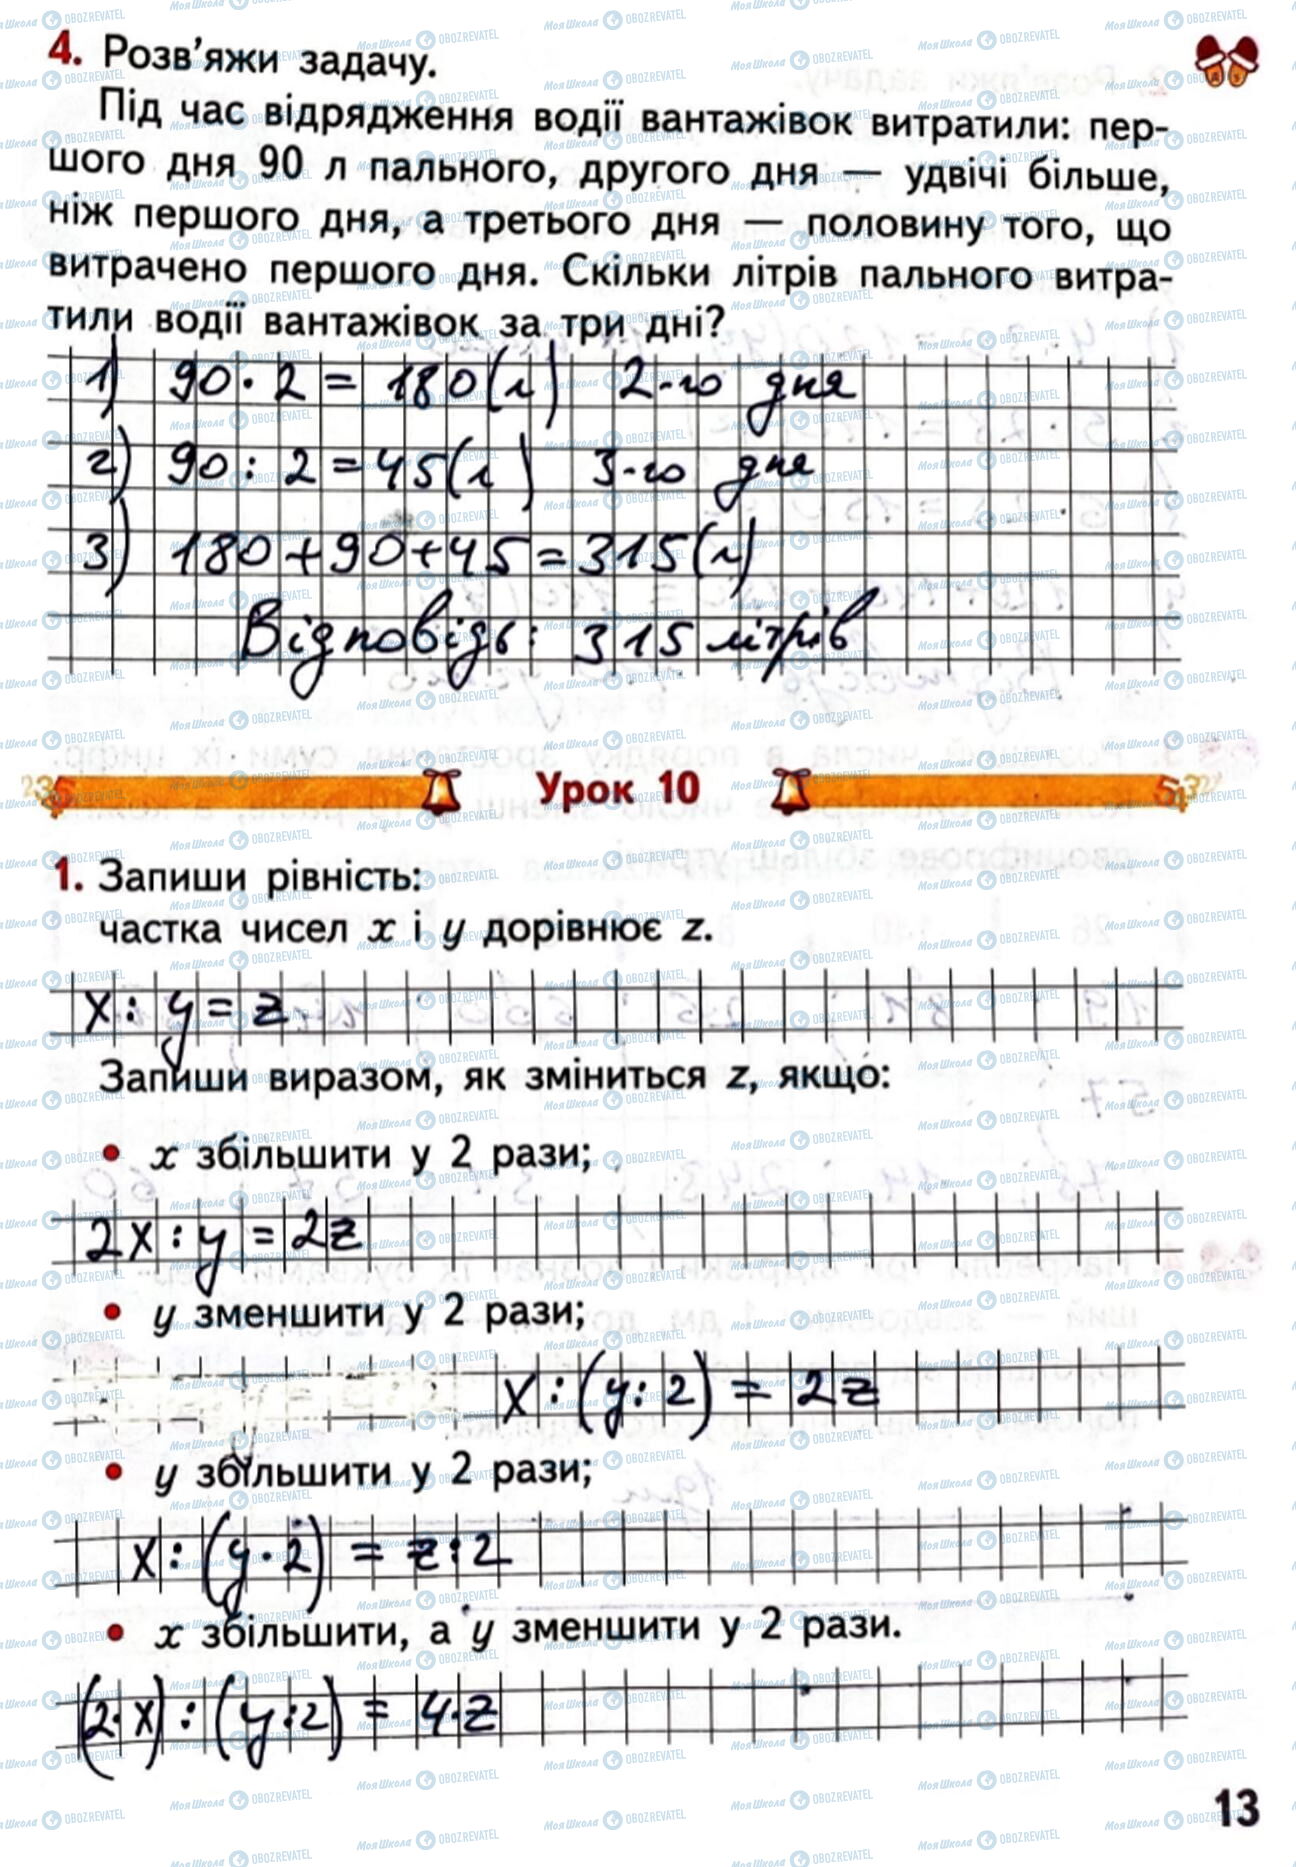 4. Розв'яжи задачу.
Під час відрядження водії вантажівок витратили: пер-
шого дня 90 л пального, другого дня — удвічі більше,
ніж першого дня, а третього дня — половину того, що
витрачено першого дня. Скільки літрів пального витра-
тили водії вантажівок за три дні?
1) 90 · 2 = 180 (л) 2-го дня
2) 90 : 2 = 45 (л) 3-го дня
3) 180 + 90 + 45 = 315 (л)
Відповідь: 315 літрів
Урок 10
1. Запиши рівність:
частка чисел x і y дорівнює z.
x : y = z
Запиши виразом, як зміниться z, якщо:
• x збільшити у 2 рази;
2x : y = 2z
• y зменшити у 2 рази;
x : (y : 2) = 2z
• y збільшити у 2 рази;
x : (y · 2) = z : 2
• x збільшити, а y зменшити у 2 рази.
(2 · x) : (y : 2) = 4 · z
13
МояШкола OBOZREVATEL